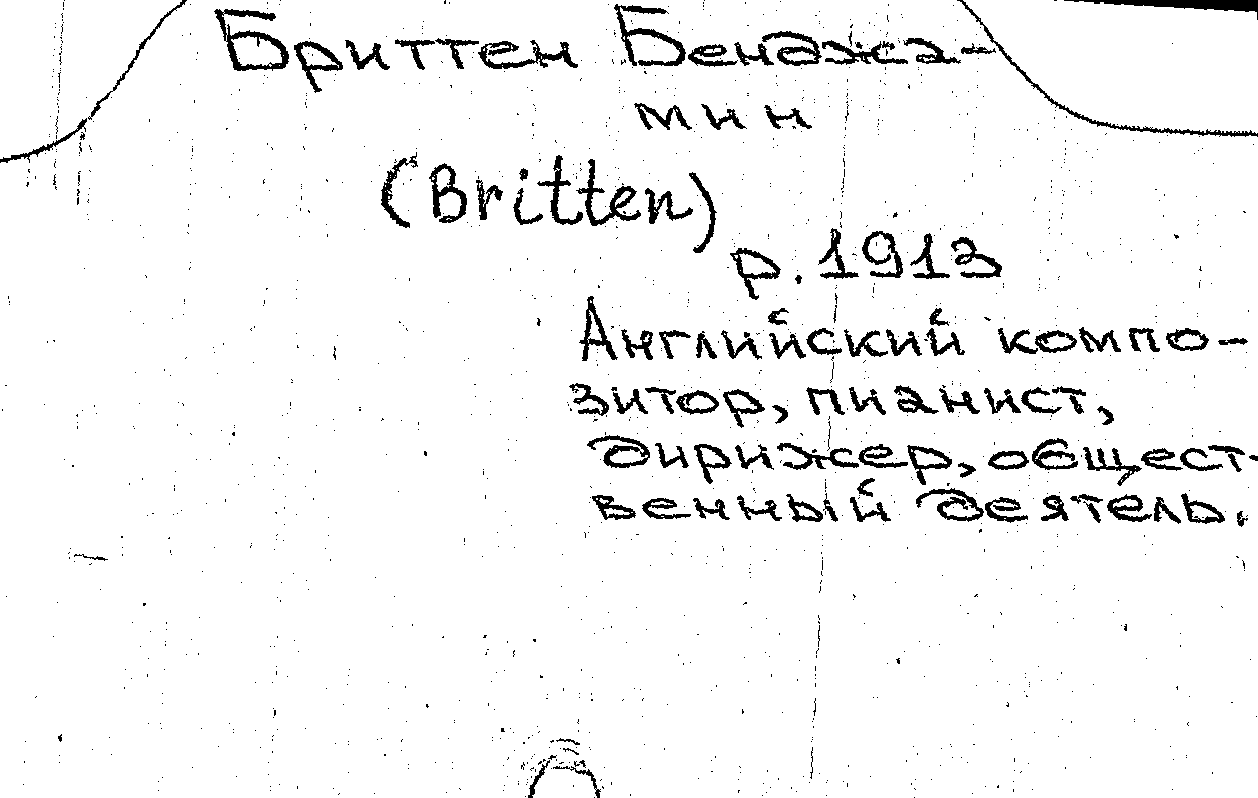 Бриттен Бенджа-
мин
(Britten)
р. 1913
Английский компо-
зитор, пианист,
дирижер, общест-
венный деятель.